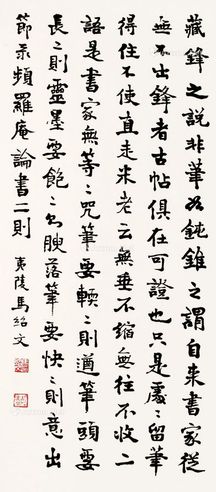 藏鋒之說非筆如鈍錐之謂自来書家從
無不出鋒者古帖俱在可證也只是處〻留筆
得住不使直走米老云無垂不缩無往不收二
語是書家無等〻咒筆要輭〻則遒筆頭要
長〻則靈墨要飽〻則腴落筆要快〻則意出
節录頻羅庵論書二則 夷陵馬紹文